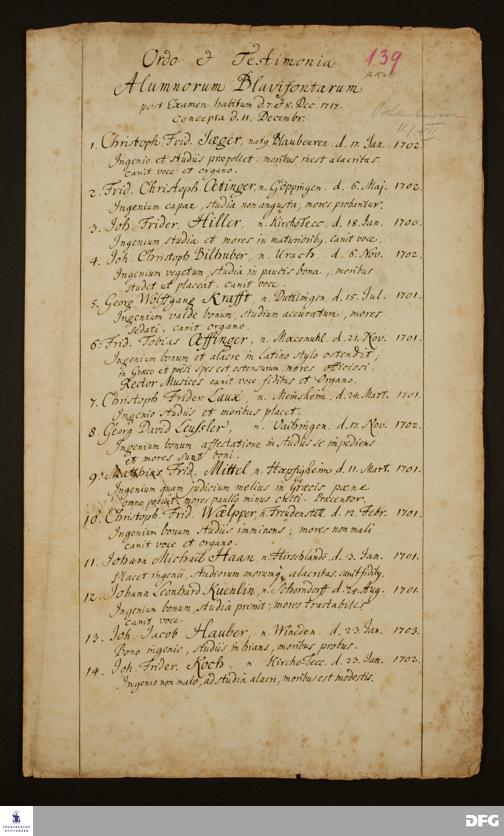 Ordo et Testimonia
Alumnorum Blavifontanorum
post Examen habitum d. 7. et 8. Dec. 1717.
concepta d. 11. Decembr.
139
1. Christoph Frid. Jæger, natq Blaubeuren. d. 17. Jan. 1702
Ingenio et studiis præpollet: moribus inest alacritas.
canit voce et organo.
2. Frid. Christoph. Œtinger, n. Göppingen. d. 6. Maj. 1702.
Ingenium capax, studia non angusta, mores probantur.
3. Joh. Frider. Hiller, n. KirchoTecc. d. 18. Jan. 1700.
Ingenium studia et mores in maturioribq. canit voce.
4. Joh. Christoph Bilhuber, n. Urach, d. 8. Nov. 1702.
Ingenium vegetum, studia in paucis bona, moribus
studet ut placeat. canit voce.
5. Georg Wolffgang Krafft, n. Duttlingen. d. 15. Jul. 1701.
Ingenium valde bonum, studium accuratum, mores
sedati. canit organo.
6. Frid. Tobias Œffinger, n. Mœcomuhl. d. 21. Nov. 1701.
Ingenium bonum et alacre in Latino stylo ostendit;
in Græco et poësi spes est ostensurum. mores officiosi.
Rector Musices canit voce fidibus et Organo.
7. Christoph Frider Laux, n. Memsheim. d. 24. Mart. 1701.
Ingenio studiis et moribus placet.
8. Georg David Leussler, n. Vaihingen. d. 17. Nov. 1702.
Ingenium bonum affectatione in studiis se impediens
et mores sunt boni.
9. Matthias Frid. Mittel n. Hæpfigheim d. 11. Mart. 1701.
Ingenium quam judicium melius in Græcis pæne
omne posuit, mores paullo minus culti. Præcentor.
10. Christoph Frid. Wælpper, n. Freudenstatt. d. 12. Febr. 1701.
Ingenium bonum studiis imminens; mores non mali
canit voce et organo.
11. Johann Michaël Haan, n. Hirschlande d. 3. Jan. 1701.
Placet ingenii, studiorum morumq; alacritas. canit fidibq.
12. Johann Leonhard Kuenlin, n. Schorndorff d. 24. Aug. 1701.
Ingenium bonum, studia premit; mores tractabiles
canit voce.
13. Joh. Jacob Hauber, n. Wineden. d. 23. Jan. 1703.
Bono ingenio, studiis inhians, moribus probus.
14. Joh. Frider. Koch, n. KirchoTecc. d. 23. Jun. 1702.
Ingenio non malo, ad studia alacri, moribus est modestis.
FRANCKESCHE
STIFTUNGEN
DFG